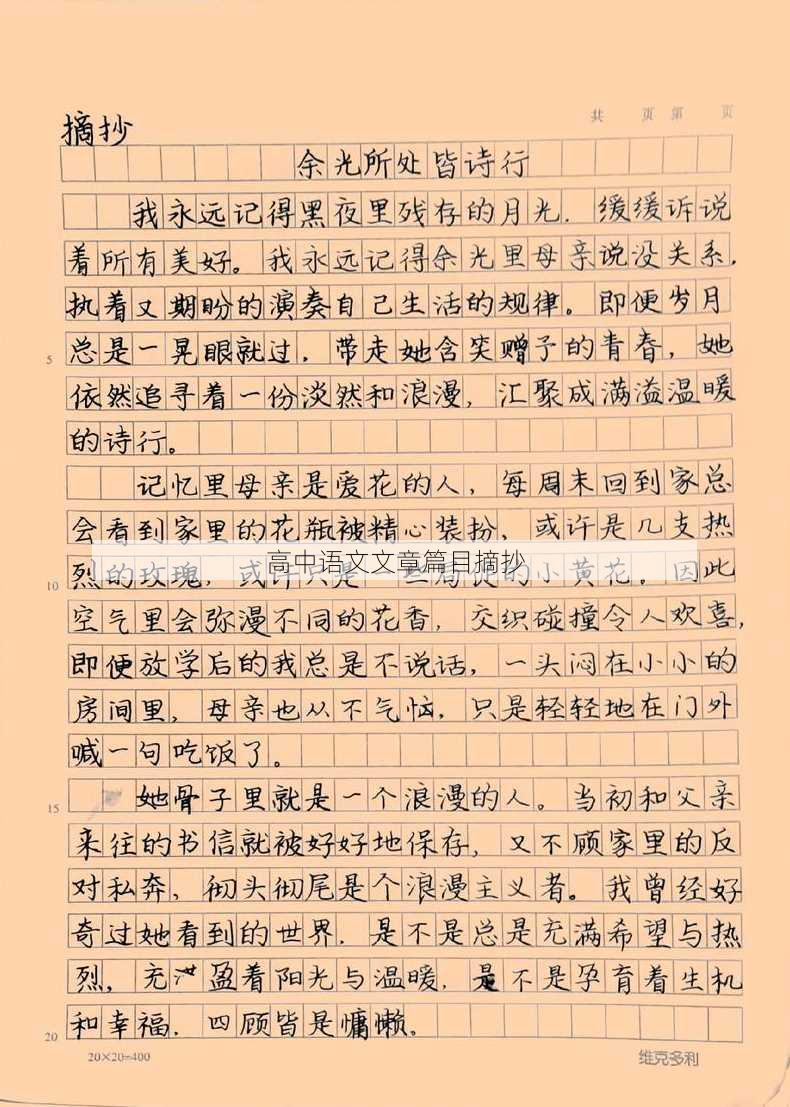 共 页 第 页
摘抄
余光所处皆诗行
我永远记得黑夜里残存的月光．缓缓诉说
着所有美好。我永远记得余光里母亲说没关系，
执着又期盼的演奏自己生活的规律。即便岁月
5 总是一晃眼就过，带走她含笑赠予的青春，她
依然追寻着一份淡然和浪漫，汇聚成满溢温暖
的诗行。
记忆里母亲是爱花的人，每周末回到家总
会看到家里的花瓶被精心装扮，或许是几支热
高中语文文章篇目摘抄
10 烈的玫瑰，或许只是一些局促的小黄花。因此
空气里会弥漫不同的花香，交织碰撞令人欢喜，
即便放学后的我总是不说话，一头闷在小小的
房间里，母亲也从不气恼，只是轻轻地在门外
喊一句吃饭了。
15 她骨子里就是一个浪漫的人。当初和父亲
来往的书信就被好好地保存，又不顾家里的反
对私奔，彻头彻尾是个浪漫主义者。我曾经好
奇过她看到的世界．是不是总是充满希望与热
烈，充盈着阳光与温暖，是不是孕育着生机
20 和幸福．四顾皆是慵懒。
20×20=400
维克多利